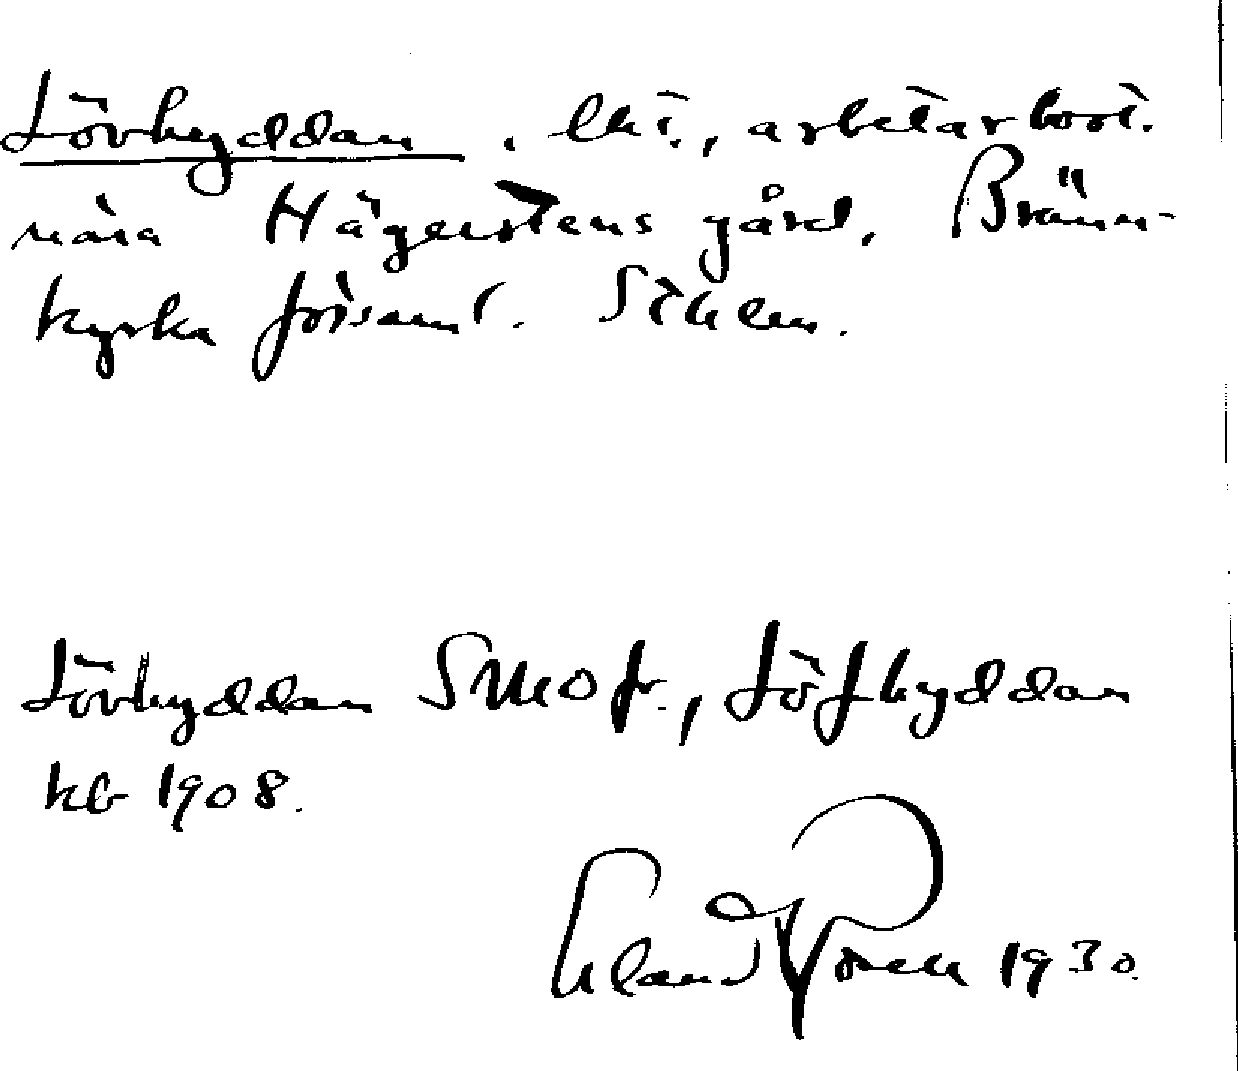 Lövhyddan. lht., arbetarbost.
nära Hägerstens gård, Bränn-
kyrka församl. Sthlm.
Lövhyddan SMOfr., Löfhyddan
kb 1908.
Erland Rosell 1930.